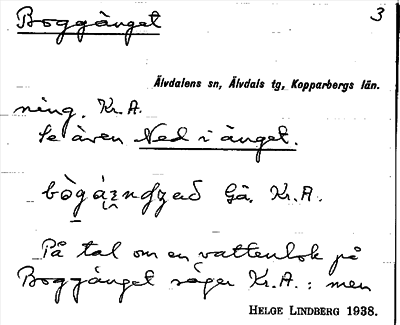 Boggänget 3
Älvdalens sn, Älvdals tg, Kopparbergs län.
ning. Kr. A.
Se även Ned i änget.
Gä. Kr. A.
På tal om en vattenlok på
Boggänget säger Kr. A.: men
HELGE LINDBERG 1938.